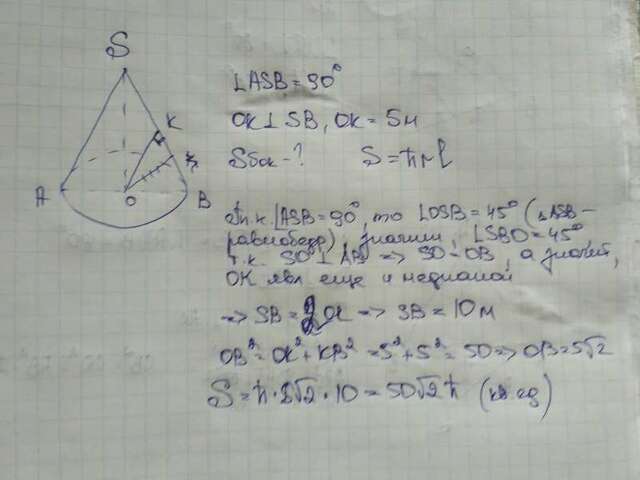 S
∠ASB = 90°
K
OK ⊥ SB, OK = 5м
Sбок - ?   S = πrl
A
O
B
Т.к. ∠ASB = 90°, то ∠OSB = 45° (△ASB -
равнобедр), значит, ∠SBO = 45°,
т.к. SO ⊥ AB => SO = OB, а значит,
OK явл еще и медианой
=> SB = 2OK => SB = 10м
OB² = OK² + KB² = 5² + 5² = 50 => OB = 5√2
S = π · 5√2 · 10 = 50√2 π (кв ед)